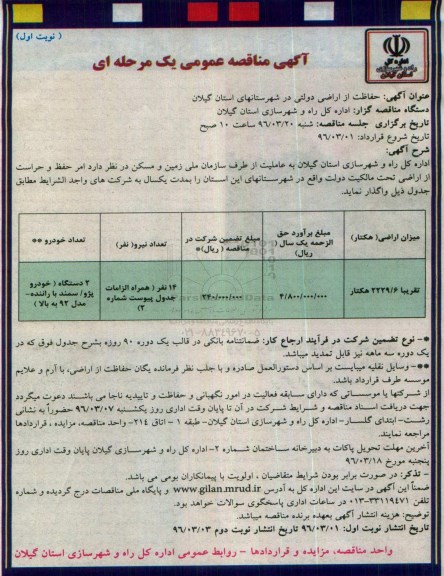 ( نوبت اول)
اداره کل
راه و شهرسازی
استان گیلان
آگهی مناقصه عمومی یک مرحله ای
عنوان آگهی: حفاظت از اراضی دولتی در شهرستانهای استان گیلان
دستگاه مناقصه گزار: اداره کل راه و شهرسازی استان گیلان
تاریخ برگزاری جلسه مناقصه: شنبه ۹۶/۰۳/۲۰ ساعت ۱۰ صبح
تاریخ شروع قرارداد: ۹۶/۰۳/۰۱
شرح آگهی:
اداره کل راه و شهرسازی استان گیلان به عاملیت از طرف سازمان ملی زمین و مسکن در نظر دارد امر حفظ و حراست
از اراضی تحت مالکیت دولت واقع در شهرستانهای این استان را بمدت یکسال به شرکت های واجد الشرایط مطابق
جدول ذیل واگذار نماید.
میزان اراضی( هکتار) مبلغ برآورد حق الزحمه یک سال ( ریال) مبلغ تضمین شرکت در مناقصه ( ریال)* تعداد نیرو( نفر) تعداد خودرو **
تقریبا ۲۲۳۹/۶ هکتار ۴/۸۰۰/۰۰۰/۰۰۰ ۲۴۰/۰۰۰/۰۰۰ ۱۴ نفر ( همراه الزامات جدول پیوست شماره ۲) ۲ دستگاه ( خودرو پژو/ سمند با راننده- مدل ۹۲ به بالا )
*- نوع تضمین شرکت در فرآیند ارجاع کار: ضمانتنامه بانکی در قالب یک دوره ۹۰ روزه بشرح جدول فوق که در
یک دوره سه ماهه نیز قابل تمدید میباشد.
**- وسایل نقلیه میبایست بر اساس دستورالعمل صادره و با جلب نظر فرمانده یگان حفاظت از اراضی، با آرم و علایم
موسسه طرف قرارداد باشد.
از شرکتها یا موسساتی که دارای سابقه فعالیت در امور نگهبانی و حفاظت و تاییدیه ناجا می باشند دعوت میگردد
جهت دریافت اسناد مناقصه و شرایط شرکت در آن تا پایان وقت اداری روز یکشنبه ۹۶/۰۳/۰۷ حضوراً به نشانی
رشت- ابتدای گلسار- اداره کل راه و شهرسازی استان گیلان- طبقه ۱ - اتاق ۲۱۴- واحد مناقصه، مزایده ، قراردادها
مراجعه نمایند.
آخرین مهلت تحویل پاکات به دبیرخانه ساختمان شماره ۲- اداره کل راه و شهرسازی گیلان پایان وقت اداری روز
پنجنبه مورخ ۹۶/۰۳/۱۸ می باشد.
- تذکر: در صورت برابر بودن شرایط متقاضیان ، اولویت با پیمانکاران بومی می باشد.
ضمناً این آگهی در سایت این اداره کل به آدرس www.gilan.mrud.ir و پایگاه ملی مناقصات درج گردیده و شماره
تلفن ۳۳۱۱۹۴۷۱-۰۱۳ در ساعات اداری پاسخگوی سوالات خواهد بود.
توضیح: هزینه انتشار آگهی بعهده برنده مناقصه میباشد.
تاریخ انتشار نوبت اول: ۹۶/۰۳/۰۱ تاریخ انتشار نوبت دوم ۹۶/۰۳/۰۳
واحد مناقصه، مزایده و قراردادها - روابط عمومی اداره کل راه و شهرسازی استان گیلان